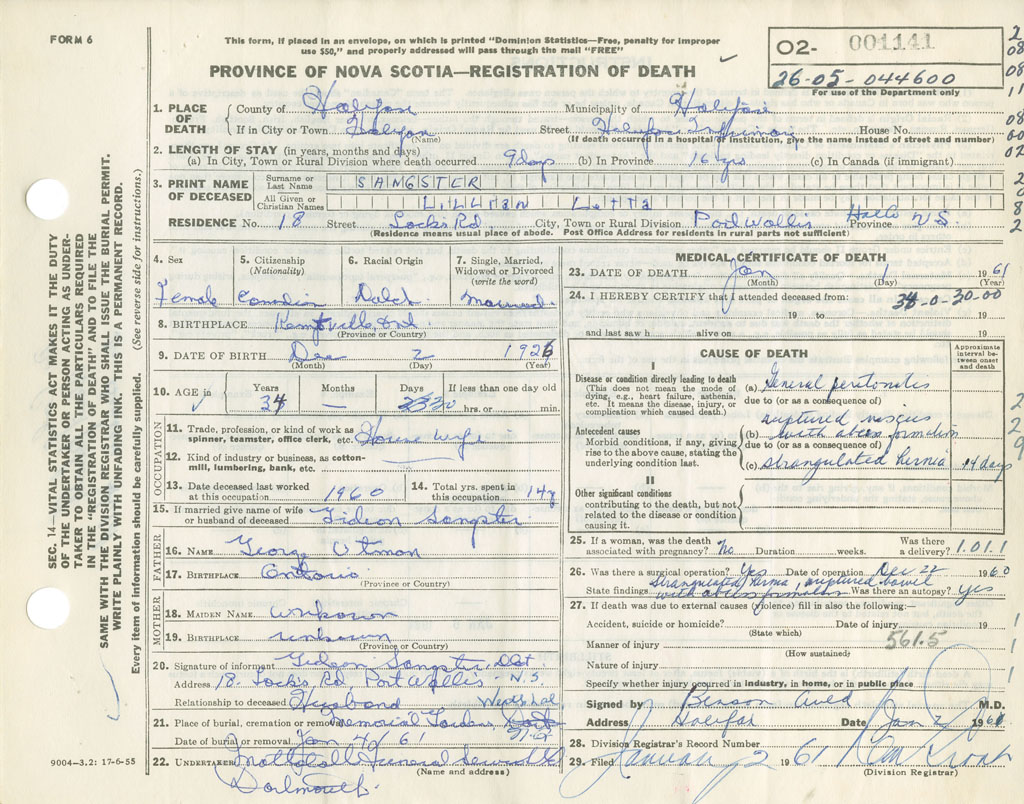 FORM 6
This form, if placed in an envelope, on which is printed "Dominion Statistics—Free, penalty for improper
use $50," and properly addressed will pass through the mail "FREE"
PROVINCE OF NOVA SCOTIA—REGISTRATION OF DEATH
O2- 001141
26-05-044600
For use of the Department only
SEC. 14—VITAL STATISTICS ACT MAKES IT THE DUTY
OF THE UNDERTAKER OR PERSON ACTING AS UNDER-
TAKER TO OBTAIN ALL THE PARTICULARS REQUIRED
IN THE "REGISTRATION OF DEATH" AND TO FILE THE
SAME WITH THE DIVISION REGISTRAR WHO SHALL ISSUE THE BURIAL PERMIT.
WRITE PLAINLY WITH UNFADING INK. THIS IS A PERMANENT RECORD.
Every item of information should be carefully supplied. (See reverse side for instructions.)
1. PLACE OF DEATH
County of Halifax Municipality of Halifax
If in City or Town Halifax (Name) Street Halifax Infirmary House No.
(If death occurred in a hospital or institution, give the name instead of street and number)
2. LENGTH OF STAY (in years, months and days)
(a) In City, Town or Rural Division where death occurred 9 days (b) In Province 16 yrs (c) In Canada (if immigrant)
3. PRINT NAME OF DECEASED
Surname or Last Name SANGSTER
All Given or Christian Names LILLIAN
RESIDENCE No. 18 Street Locks Rd City, Town or Rural Division Port Wallis Province Halifax N.S.
(Residence means usual place of abode. Post Office Address for residents in rural parts not sufficient)
4. Sex Female
5. Citizenship (Nationality) Canadian
6. Racial Origin Dutch
7. Single, Married, Widowed or Divorced (write the word) Married
8. BIRTHPLACE Kemptville, Ont. (Province or Country)
9. DATE OF BIRTH Dec 2 1926
(Month) (Day) (Year)
10. AGE in Years 34 Months — Days 30 If less than one day old hrs. or min.
OCCUPATION
11. Trade, profession, or kind of work as
spinner, teamster, office clerk, etc. House wife
12. Kind of industry or business, as cotton-
mill, lumbering, bank, etc. —
13. Date deceased last worked at this occupation 1960
14. Total yrs. spent in this occupation 14 y
15. If married give name of wife or husband of deceased Gideon Sangster
FATHER
16. NAME George Utman
17. BIRTHPLACE Ontario (Province or Country)
MOTHER
18. MAIDEN NAME unknown
19. BIRTHPLACE unknown (Province or Country)
20. Signature of informant Gideon Sangster
Address 18 Locks Rd, Port Wallis - N.S.
Relationship to deceased Husband
21. Place of burial, cremation or removal Memorial Gardens
Date of burial or removal Jan 4/61
22. UNDERTAKER Funeral Service
(Name and address)
Dartmouth
MEDICAL CERTIFICATE OF DEATH
23. DATE OF DEATH Jan 1 1961
(Month) (Day)
24. I HEREBY CERTIFY that I attended deceased from: 34-0-30-00
19 to 19
and last saw h alive on 19
CAUSE OF DEATH
Approximate interval between onset and death
I
Disease or condition directly leading to death
(This does not mean the mode of dying, e.g., heart failure, asthenia, etc. It means the disease, injury, or complication which caused death.)
(a) General peritonitis
due to (or as a consequence of)
Antecedent causes
Morbid conditions, if any, giving rise to the above cause, stating the underlying condition last.
(b) ruptured viscus with abcess formation
due to (or as a consequence of)
(c) Strangulated hernia 14 days
II
Other significant conditions
contributing to the death, but not related to the disease or condition causing it.
25. If a woman, was the death associated with pregnancy? No Duration weeks. Was there a delivery? 1.01.1
26. Was there a surgical operation? Yes Date of operation Dec 22 1960
State findings Strangulated hernia, ruptured bowel with abcess formation Was there an autopsy? Yes
27. If death was due to external causes (violence) fill in also the following:—
Accident, suicide or homicide? (State which) Date of injury 19
561.5
Manner of injury (How sustained)
Nature of injury
Specify whether injury occurred in industry, in home, or in public place
Signed by Benson Auld M.D.
Address Halifax Date Jan 2 1961
28. Division Registrar's Record Number
29. Filed January 2 1961
(Division Registrar)
9004—3.2: 17-6-55